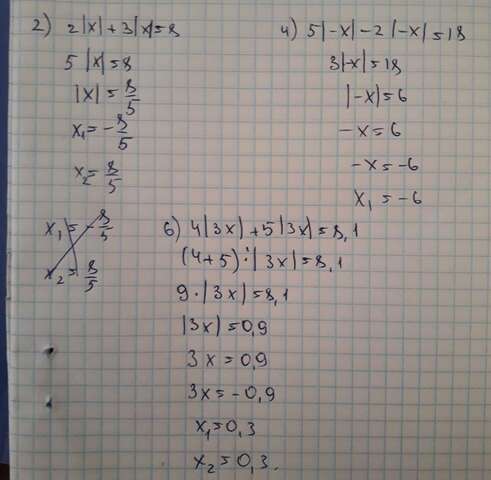 2) 2|x|+3|x|=8
5|x|=8
|x|=8/5
x₁=-8/5
x₂=8/5
x₁=-8/5
x₂=8/5
4) 5|-x|-2|-x|=18
3|-x|=18
|-x|=6
-x=6
-x=-6
x₁=-6
6) 4|3x|+5|3x|=8,1
(4+5)·|3x|=8,1
9·|3x|=8,1
|3x|=0,9
3x=0,9
3x=-0,9
x₁=0,3
x₂=0,3.